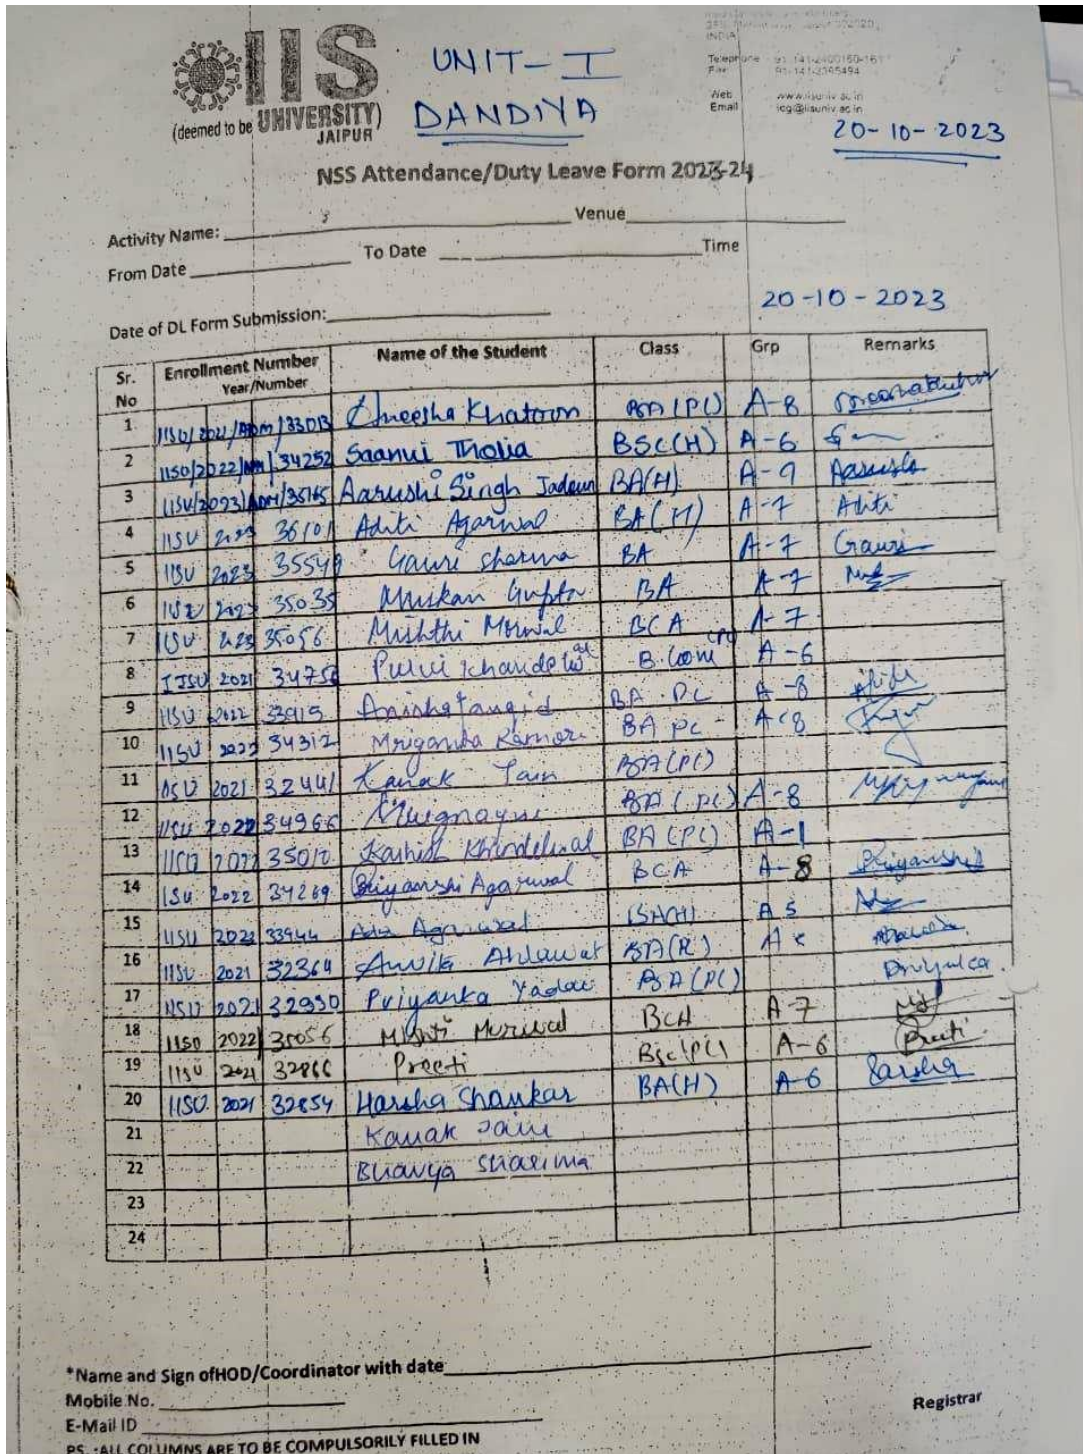 IIS
(deemed to be UNIVERSITY)
JAIPUR
UNIT-I
DANDIYA
INDIA
Telephone
Fax
Web www.iisuniv.ac.in
Email icg@iisuniv.ac.in
20-10-2023
NSS Attendance/Duty Leave Form 2023-24
Activity Name: Venue
From Date To Date Time
20-10-2023
Date of DL Form Submission:
Sr. No Enrollment Number Year/Number Name of the Student Class Grp Remarks
1 IISU/2021/ADM/33013 Khatoon BA(PC) A-8
2 IISU/2022/ADM/34252 Saanvi Tholia BSC(H) A-6
3 IISU/2023/ADM/35165 Aarushi Singh Jadoun BA(H) A-9 Aarushi
4 IISU 2023 36101 Aditi Agarwal BA(H) A-7 Aditi
5 IISU 2023 35549 Gauri Sharma BA A-7 Gauri
6 IISU 2023 35035 Muskan Gupta BA A-7
7 IISU 2023 35056 Mishthi Morwal BCA A-7
8 IISU 2021 34756 Purvi Khandelwal B.Com A-6
9 IISU 2022 33915 Anisha Jangid BA PC A-8
10 IISU 2022 34312 Mriganka BA PC A-8
11 IISU 2021 32441 Kanak Jain BA(PC)
12 IISU 2022 34966 Mrignayni BA(PC) A-8
13 IISU 2022 35010 Kashish Khandelwal BA(PC) A-1
14 IISU 2022 34269 Priyanshi Agarwal BCA A-8 Priyanshi
15 IISU 2022 33944 Agarwal BA(H) A 5
16 IISU 2021 32364 Anvita Ahlawat BA(H) A
17 IISU 2021 32930 Priyanka Yadav BA(PC) Priyanka
18 IISU 2022 35056 Mishti Morwal BCA A-7
19 IISU 2021 32866 Preeti Bsc(PC) A-6 Preeti
20 IISU 2021 32854 Harsha Shankar BA(H) A-6
21 Kanak Jain
22 Bhavya Sharma
23
24
*Name and Sign ofHOD/Coordinator with date
Mobile No.
Registrar
E-Mail ID
PS. :ALL COLUMNS ARE TO BE COMPULSORILY FILLED IN